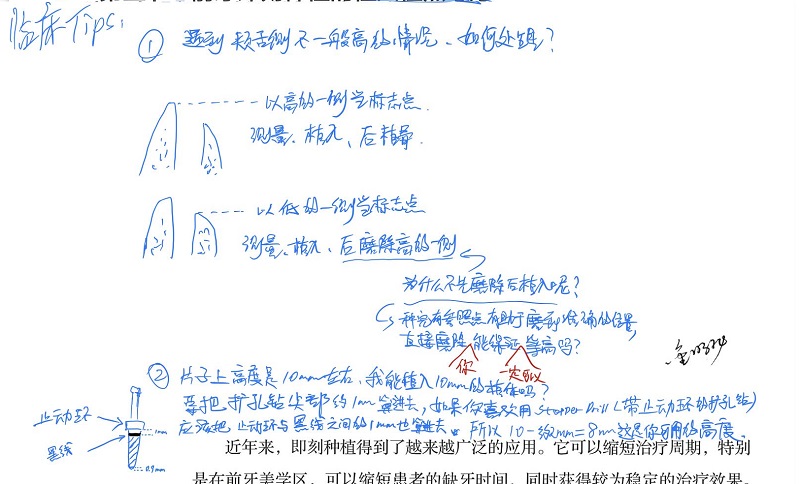 临床Tips:
① 遇到颊舌侧不一般高的情况、如何处理?
以高的一侧当标志点.
测量、植入、后植骨.
以低的一侧当标志点
测量、植入、后磨除高的一侧
为什么不先磨除后植入呢?
种完有参照点有助于磨到准确的位置,
直接磨除, 能保证等高吗?
你 一定
② 片子上高度是10mm左右、我能植入10mm的植体吗?
要把扩孔钻尖部约1mm算进去, 如果你喜欢用 Stopper Drill (带止动环的扩孔钻)
应该把止动环与黑线之间的1mm也算进去。所以 10-2mm=8mm 这是你可用的高度.
止动环
黑线
1mm
0.9mm
近年来,即刻种植得到了越来越广泛的应用。它可以缩短治疗周期,特别
是在前牙美学区,可以缩短患者的缺牙时间,同时获得较为稳定的治疗效果。